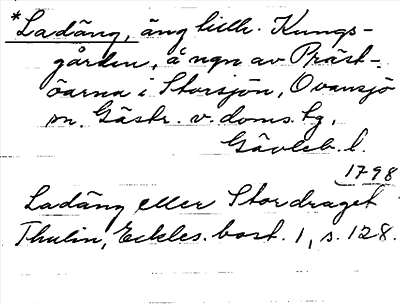 *Ladäng, äng tillh. Kungs-
gården, å ngn av Präst-
öarna i Storsjön, Ovansjö
sn. Gästr. v. doms. tg,
Gävleb. l.
1798
Ladäng eller Stordraget
Thulin, Eckles. bost. 1, s. 128.